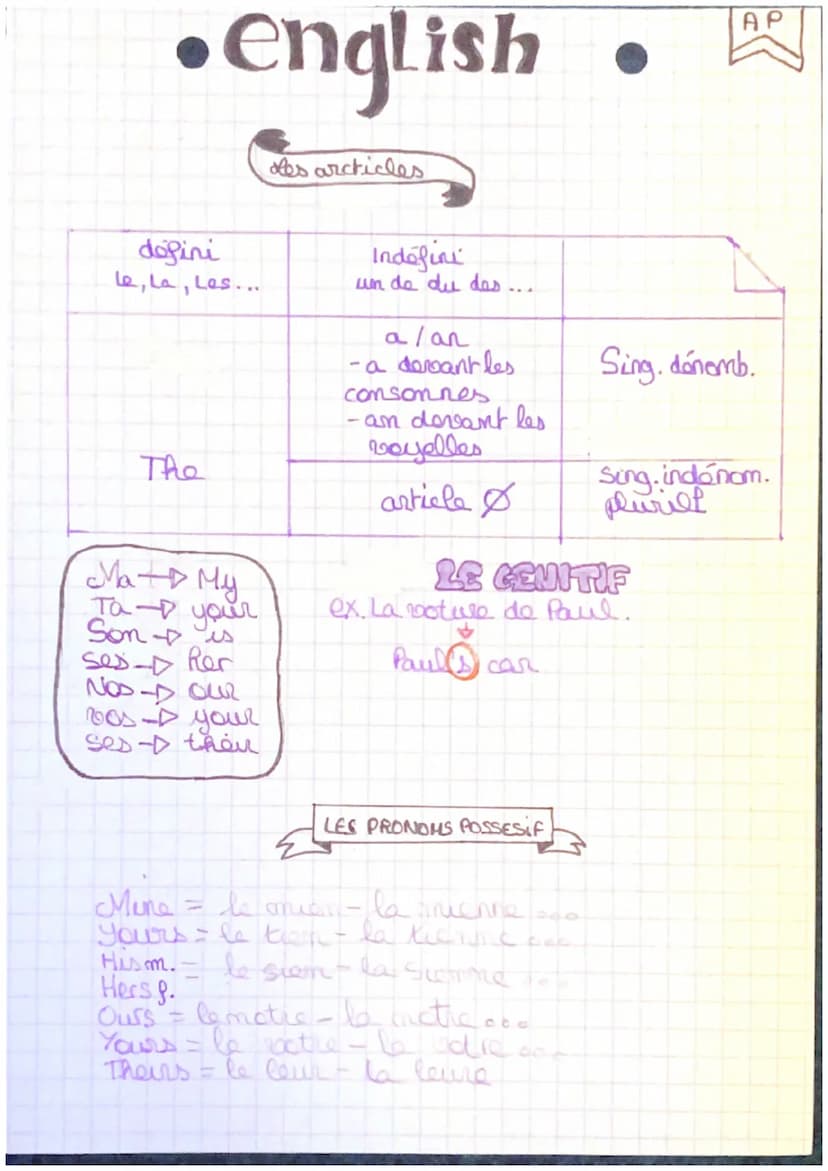 • English •
AP
Les arcticles
défini
le, la, les...
Indéfini
un de du des...
The
a / an
- a devant les
consonnes
- an devant les
voyelles
Sing. dénomb.
article Ø
Sing. indénom.
pluriel
Ma → My
Ta → your
Son → is
ses → her
Nos → our
vos → your
ses → their
LE GENITIF
ex. La voture de Paul.
↓
Paul's car
LES PRONOMS POSSESIF
Mine = le mien - la mienne ...
Yours = le tien - la tienne ...
His m. = le sien - la sienne ...
Hers f.
Ours = le notre - la notre ...
Yours = le votre - la votre ...
Theirs = le leur - la leure